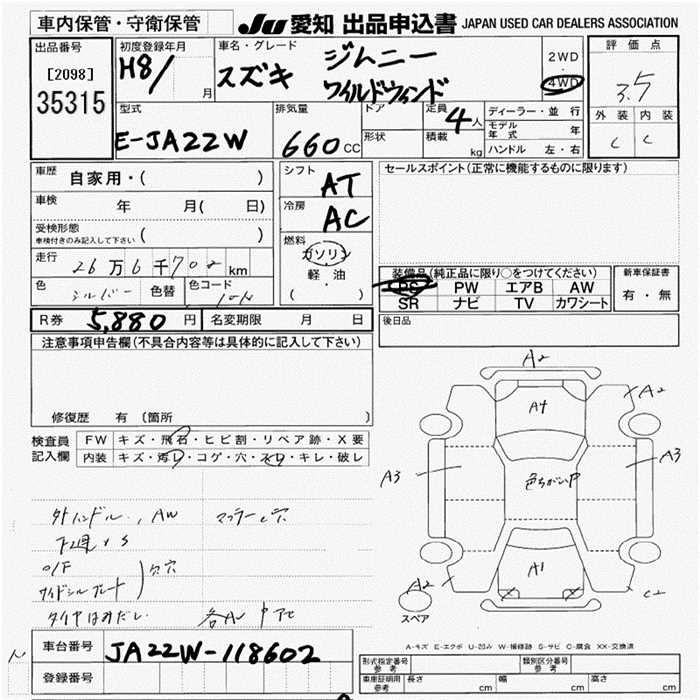 車内保管・守衛保管
JU 愛知 出品申込書 JAPAN USED CAR DEALERS ASSOCIATION
出品番号
[2098]
35315
初度登録年月
H8/ 月
車名・グレード
スズキ ジムニー
ワイルドウィンド
2WD
・
4WD
評価点
3.5
外装 内装
C C
型式
E-JA22W
排気量
660 CC
ドア
形状
定員
4人
積載 kg
ディーラー・並行
モデル年式 年
ハンドル 左・右
車歴 自家用・( )
車検 年 月( 日)
受検形態
車検付きのみ記入して下さい ( )
走行 26万6千702km
色 シルバー 色替 色コード
シフト AT
冷房 AC
燃料
ガソリン
軽・油
( )
セールスポイント(正常に機能するものに限ります)
装備品(純正品に限り○をつけてください)
PS PW エアB AW
SR ナビ TV カワシート
新車保証書
有・無
R券 5,880円 名変期限 月 日
後日品
注意事項申告欄(不具合内容等は具体的に記入して下さい)
修復歴 有 〔箇所 〕
検査員記入欄
FW キズ・飛石・ヒビ割・リペア跡・X要
内装 キズ・汚レ・コゲ・穴・スレ・キレ・破レ
外ハンドル、AW マフラー 穴
下廻 S
O/F
サイドシルプレート 欠穴
タイヤはみだし
A2
A4
A2
A3
A3
色ちがい
A1
A2
C2
スペア
A-キズ E-エクボ U-凹み W-補修跡 S-サビ C-腐食 XX-交換済
車台番号 JA22W-118602
登録番号
形式指定番号 参考
類別区分番号 参考
車庫証明用 参考 長さ cm 幅 cm 高さ cm